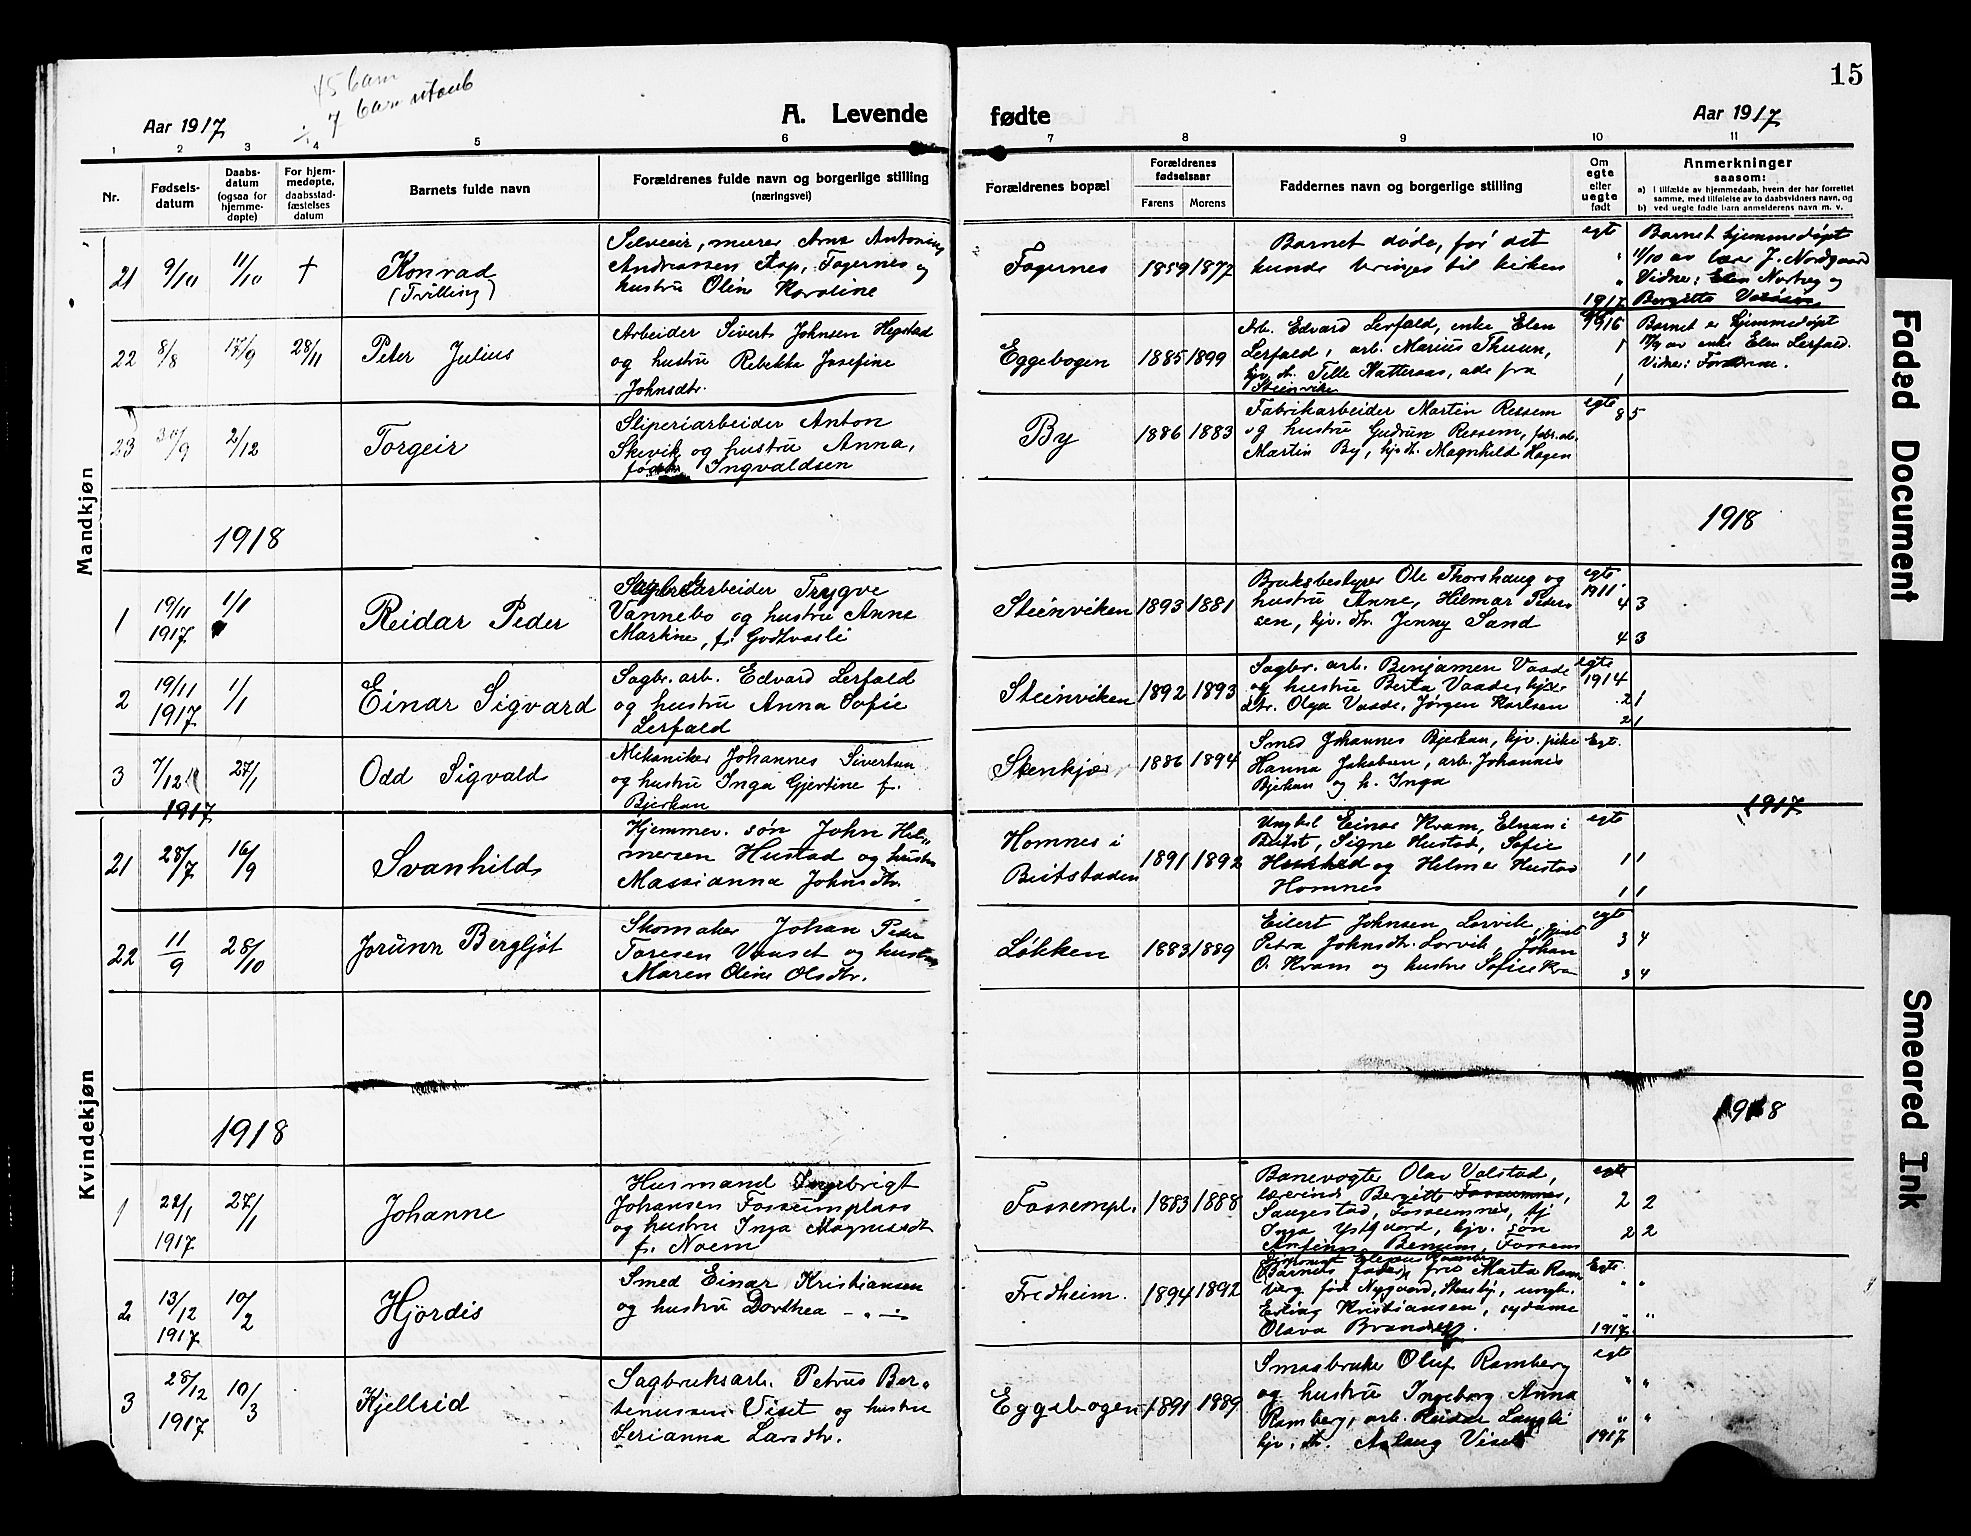 15
45 barn
÷ 7 barn utenb
Aar 1917
A. Levende fødte
Aar 1917
1 2 3 4 5 6 7 8 9 10 11
Nr.
Fødsels-
datum
Daabs-
datum
(ogsaa for
hjemme-
døpte)
For hjem-
medøpte,
daabsstad-
fæstelses
datum
Barnets fulde navn
Forældrenes fulde navn og borgerlige stilling
(næringsvei)
Forældrenes bopæl
Forældrenes
fødselsaar
Farens Morens
Faddernes navn og borgerlige stilling
Om
egte
eller
uegte
født
Anmerkninger
saasom:
a) i tilfælde av hjemmedaab, hvem der har forrettet
samme, med tilføielse av to daabsvidners navn, og
b) ved uegte fødte barn anmelderens navn m. v.
Mandkjøn
21 9/10 11/10 † Konrad
(Tvilling)
Selveier, murer Arnt Antonius
Andreassen Aap, Fagernes og
hustru Oline Karoline
Fagernes 1859 1877
Barnet døde, før det
kunde bringes til kirken
egt
" "
1917
Barnet hjemmedøpt
11/10 av lær J. Nordgaard
Vidne: Elen Nortug og
Bergitte
22 8/8 17/9 28/11 Peter Julius
Arbeider Sivert Johnsen Hegstad
og hustru Rebekka Josefine
Johnsdtr.
Eggebogen 1885 1899
Arb. Edvard Lerfald, enke Elen
Lerfald, arb. Marius Thuun,
hjv. dt. Tille Hatteraas, alle fra
Steinviken
1916
1
1
Barnet er hjemmedøpt
17/9 av enke Elen Lerfald.
Vidne: Forældrene.
23 30/9 2/12 Torgeir
Sliperiarbeider Anton
Skevik og hustru Anna,
født Ingvaldsen
By 1886 1883
Fabrikarbeider Martin Ressem
og hustru Gudrun Ressem, fabr. ab.
Martin By, hjv. dt. Magnhild Hagen
egte
8 5
1918
1918
1 19/11 1917 1/1 Reidar Peder
Sagbr.arbeider Trygve
Vannebo og hustru Anne
Martine, f. Godtvasli
Steinviken 1893 1881
Bruksbestyrer Ole Thorshaug og
hustru Anne, Helmar Peder
sen, hjv. dt. Jenny Sand
egte
1911
4 3
4 3
2 19/11 1917 1/1 Einar Sigvard
Sagbr. arb. Edvard Lerfald
og hustru Anna Sofie
Lerfald
Steinviken 1892 1893
Sagbr. arb. Benjamen Vaade
og hustru Berta Vaade, hjv.
dtr. Olga Vaade, Jørgen Karlsen
egte
1914
2 1
2 1
3 7/12 1917 27/1 Odd Sigvald
Mekaniker Johannes Sivertsen
og hustru Inga Gjertine f.
Bjerkan
Stenkjær 1886 1894
Smed Johannes Bjerkan, hjv. pike
Hanna Jakobsen, arb. Johannes
Bjerkan og h. Inga
Egt.
Kvindekjøn
1917
21 28/7 16/9 Svanhild
Hjemmev. søn John Hel-
mersen Hustad og hustru
Massianna Johnsdtr.
Homnes i
Beitstaden
1891 1892
Ungkl Einar Kvam, Elnan i
Beitst, Signe Hustad, Sofie
Hustad og Helmer Hustad
Homnes
egte
1 1
1 1
22 11/9 28/10 Jorunn Bergljot
Skomaker Johan Peder
Toresen Vanset og hustru
Maren Oline Olsdtr.
Løkken 1883 1889
Eilert Johnsen Lorvik, pike
Petra Johnsdtr. Lorvik, Johan
O. Kvam og hustru Sofie Kva
egte
3 4
3 4
1918
1918
1 22/1 1917 27/1 Johanne
Husmand Ingebrigt
Johansen Fossumplass
og hustru Inga Magnusdtr
f. Noem
Fossempl. 1883 1888
Banevogter Olav Valstad,
lærerinde Bergitte Fossumnes,
Saugestad, Fossumnes, hj
Inga Ystgaard, hjv. søn
Anfinn Benum, Fossem
egte
2 2
2 2
2 13/12 1917 10/2 Hjördis
Smed Einar Kristiansen
og hustru Dorthea — " —
Fredheim. 1894 1892
(Barnets fader), frue Marta Ram
berg. fød Nygaard, Stenkj., ungk.
Erling Kristiansen, sydame
Olava Brandsegg.
Egte.
" "
" "
1917.
3 28/12 1917 10/3 Kjellrid
Sagbruksarb. Petrus Ber-
tenussen Viset og hustru
Serianna Larsdtr.
Eggebogen 1891 1889
Smaabruker Oluf Ramberg
og hustru Ingeborg Anna
Ramberg, arb. Reidar Langli
hjv. dt. Aslaug Viset
egte
" "
" "
1917
Faded Document
Smeared Ink